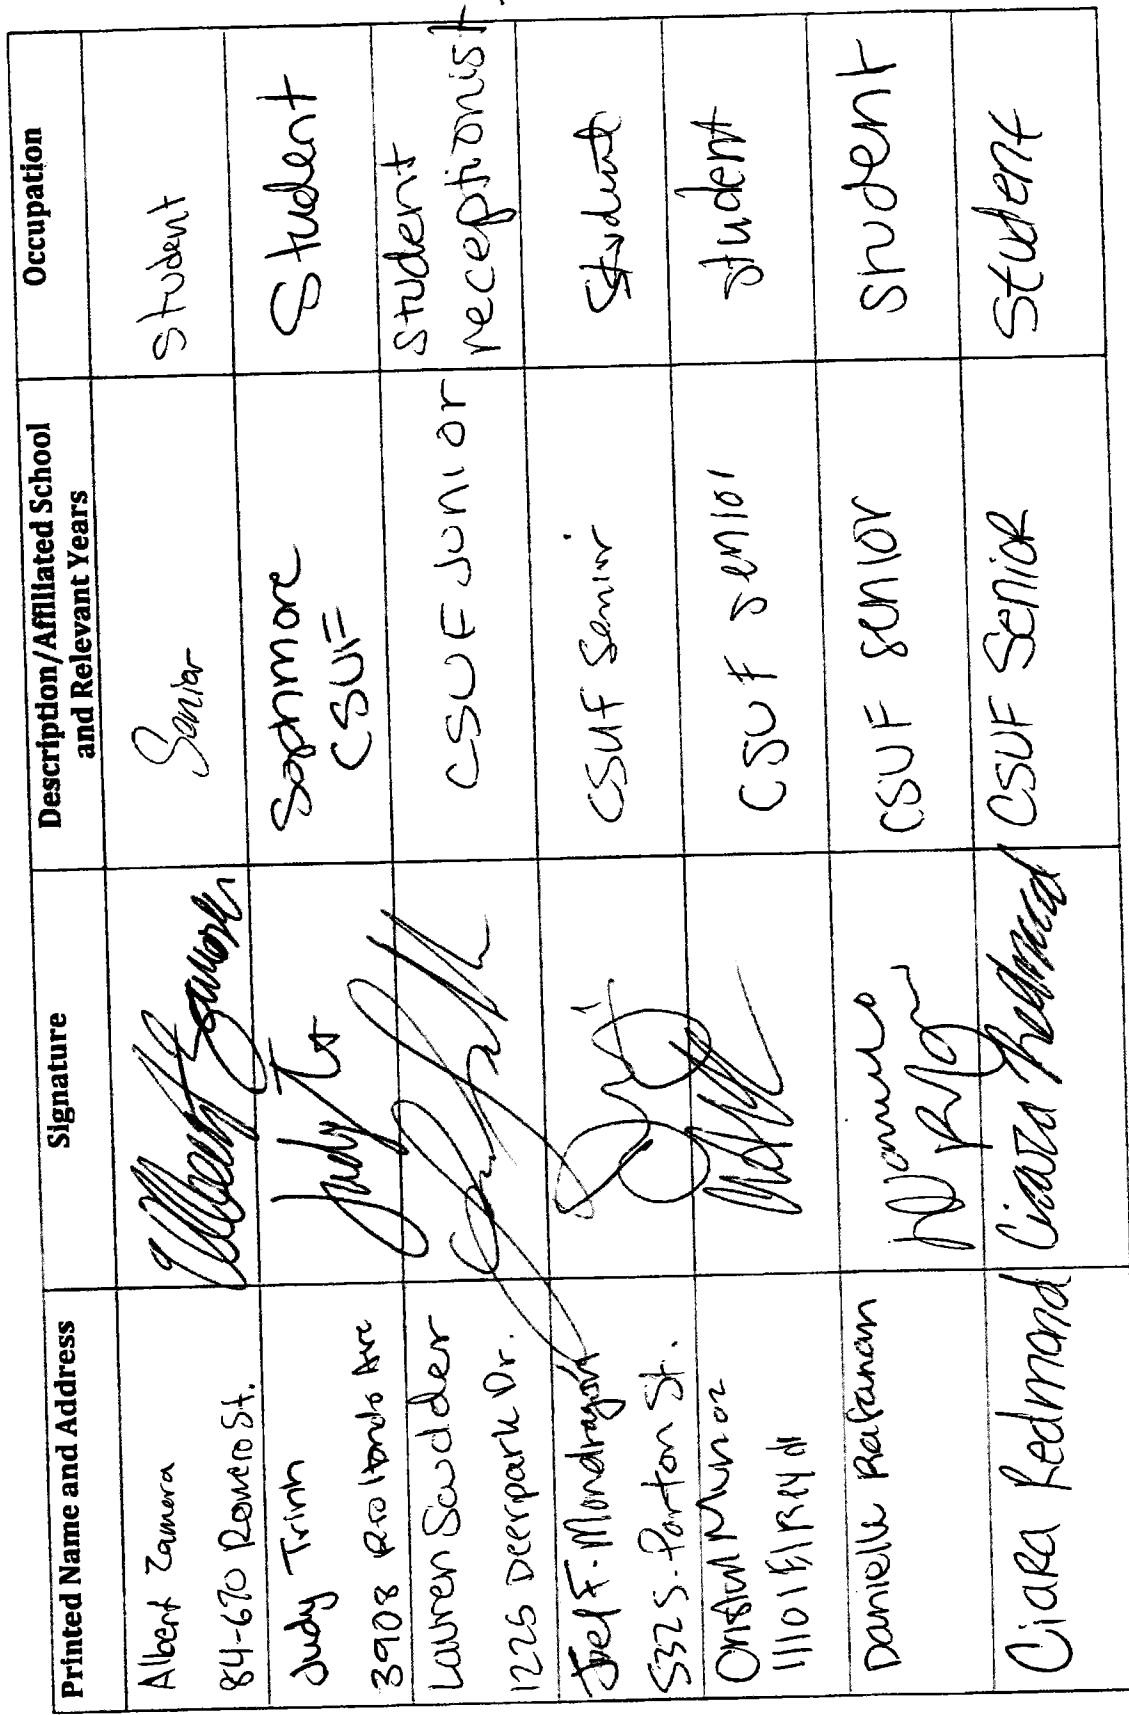 Printed Name and Address
Signature
Description/Affiliated School
and Relevant Years
Occupation
Albert Zamora
84-670 Romero St.
Senior
Student
Judy Trinh
3908 Rio Hondo Ave
Judy
Sophmore
CSUF
Student
Lauren Sawdder
1225 Deerpark Dr.
CSUF Junior
Student
receptionist
Joel F. Mondragon
532 S. Parton St.
CSUF Senior
Student
Munoz
1110 El Rey dr
CSUF senior
student
Danielle Rafanan
CSUF senior
student
Ciara Redmond
Ciara Redmond
CSUF Senior
Student